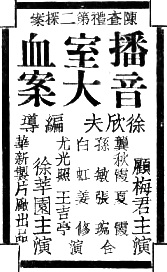 陳查禮第二探案
播音
室大
血案
徐欣夫編導
顧梅君主演
龔秋霞 夏霞
孫敏 張
尤光照 王吉亭
白虹 姜修 演
徐莘園主演
華新製片廠出品